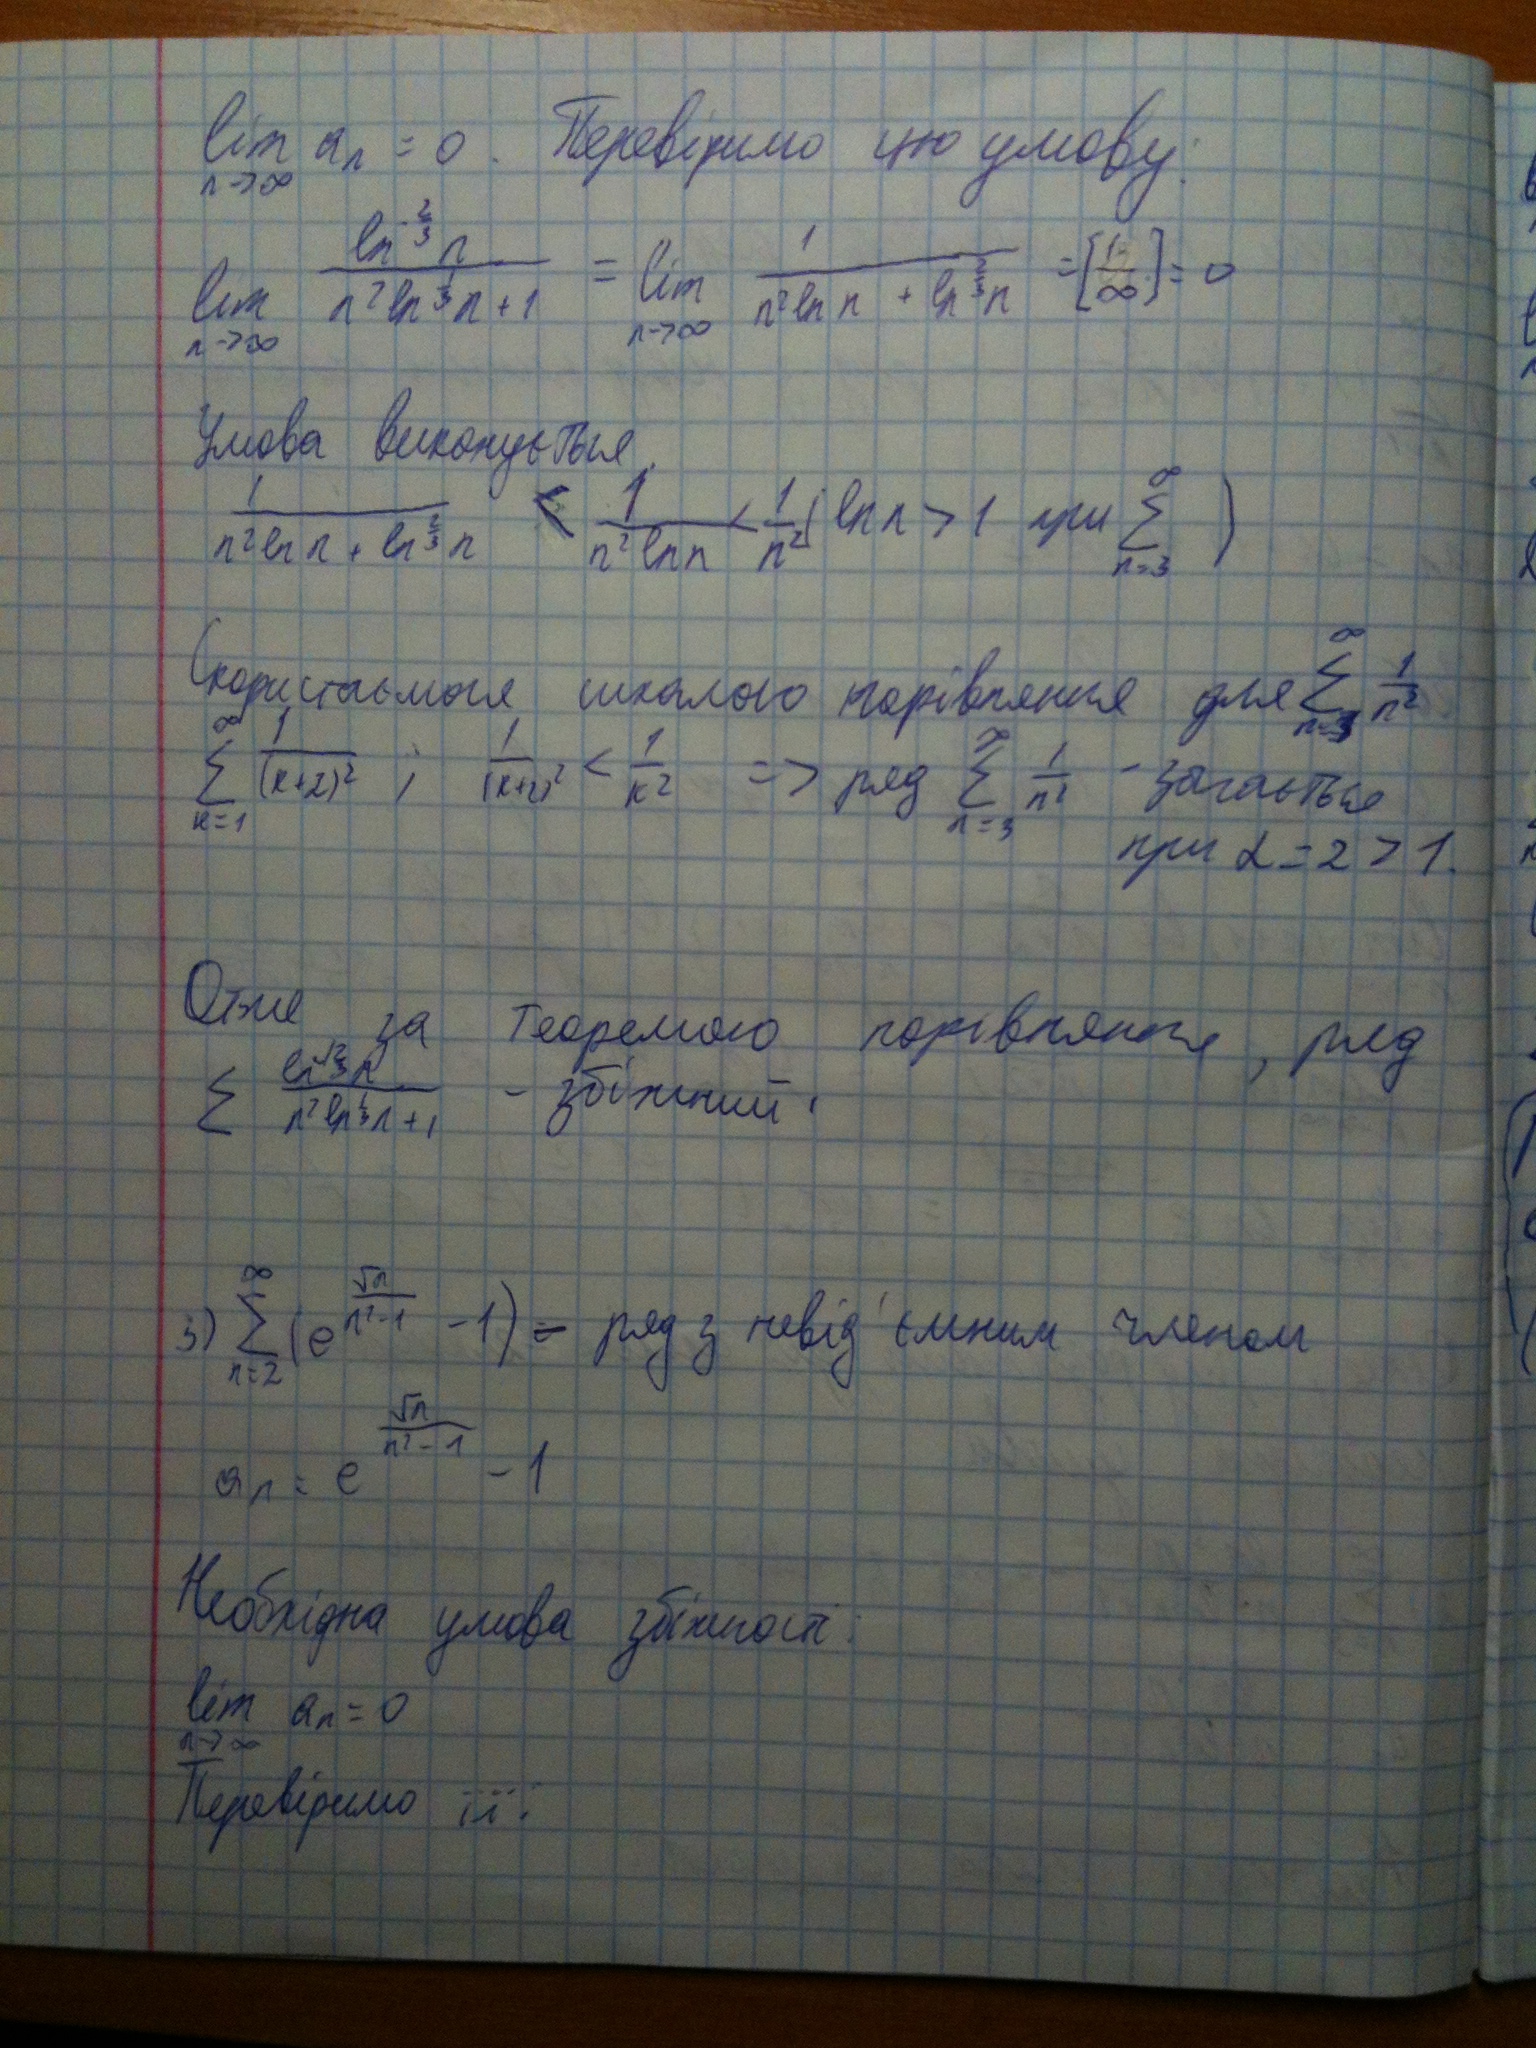 lim a_n = 0. Перевіримо цю умову:
n→∞
lim_{n→∞} \frac{ln^{-\frac{2}{3}} n}{n² ln^{\frac{1}{3}} n + 1} = lim_{n→∞} \frac{1}{n² ln n + ln^{\frac{2}{3}} n} = [\frac{1}{∞}] = 0
Умова виконується.
\frac{1}{n² ln n + ln^{\frac{2}{3}} n} < \frac{1}{n² ln n} < \frac{1}{n²} (ln n > 1 при \sum_{n=3}^{∞})
Скористаємося шкалою порівняння для \sum_{n=3}^{∞} \frac{1}{n²}
\sum_{k=1}^{∞} \frac{1}{(k+2)²} ; \frac{1}{(k+2)²} < \frac{1}{k²} => ряд \sum_{n=3}^{∞} \frac{1}{n²} -
при α = 2 > 1.
Отже за теоремою порівняння, ряд
∑ \frac{ln^{-\frac{2}{3}} n}{n² ln^{\frac{1}{3}} n + 1} - збіжний.
3) \sum_{n=2}^{∞} (e^{\frac{√n}{n²-1}} - 1) - ряд з невід'ємним членом
a_n = e^{\frac{√n}{n²-1}} - 1
Необхідна умова збіжності:
lim a_n = 0
n→∞
Перевіримо її: